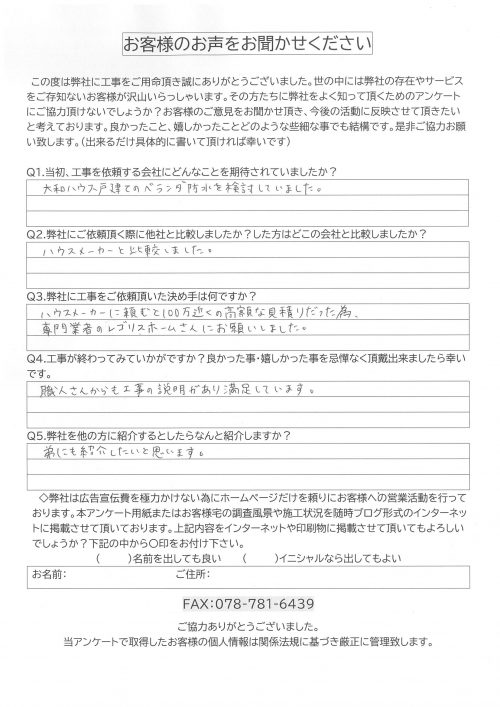 お客様のお声をお聞かせください
この度は弊社に工事をご用命頂き誠にありがとうございました。世の中には弊社の存在やサービス
をご存知ないお客様が沢山いらっしゃいます。その方たちに弊社をよく知って頂くためのアンケート
にご協力頂けないでしょうか?お客様のご意見をお聞かせ頂き、今後の活動に反映させて頂きたい
と考えております。良かったこと、嬉しかったことどのような些細な事でも結構です。是非ご協力お願
い致します。(出来るだけ具体的に書いて頂ければ幸いです)
Q1.当初、工事を依頼する会社にどんなことを期待されていましたか?
大和ハウス戸建てのベランダ防水を検討していました。
Q2.弊社にご依頼頂く際に他社と比較しましたか?した方はどこの会社と比較しましたか?
ハウスメーカーと比較しました。
Q3.弊社に工事をご依頼頂いた決め手は何ですか?
ハウスメーカーに頼むと100万近くの高額な見積りだった為、
専門業者のレブリスホームさんにお願いしました。
Q4.工事が終わってみていかがですか?良かった事・嬉しかった事を忌憚なく頂戴出来ましたら幸い
です。
職人さんからも工事の説明があり満足しています。
Q5.弊社を他の方に紹介するとしたらなんと紹介しますか?
弟にも紹介したいと思います。
◇弊社は広告宣伝費を極力かけない為にホームページだけを頼りにお客様への営業活動を行って
おります。本アンケート用紙またはお客様宅の調査風景や施工状況を随時ブログ形式のインターネッ
トに掲載させて頂いております。上記内容をインターネットや印刷物に掲載させて頂いてもよろしい
でしょうか?下記の中から〇印をお付け下さい。
(　　)名前を出しても良い　(　　)イニシャルなら出してもよい
お名前:　ご住所:
FAX:078-781-6439
ご協力ありがとうございました。
当アンケートで取得したお客様の個人情報は関係法規に基づき厳正に管理致します。